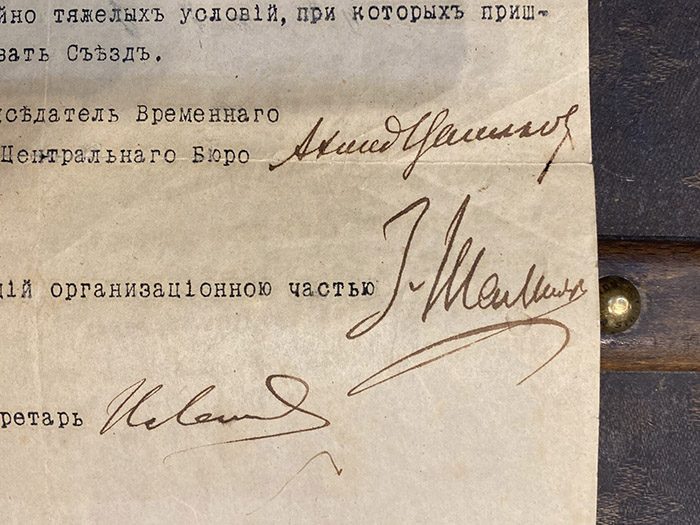 йно тяжелыхъ условій, при которыхъ приш-
вать Съѣздъ.
ксѣдатель Временнаго
Центральнаго Бюро Ахмед Цаликов
цій организаціонною частью
ретарь